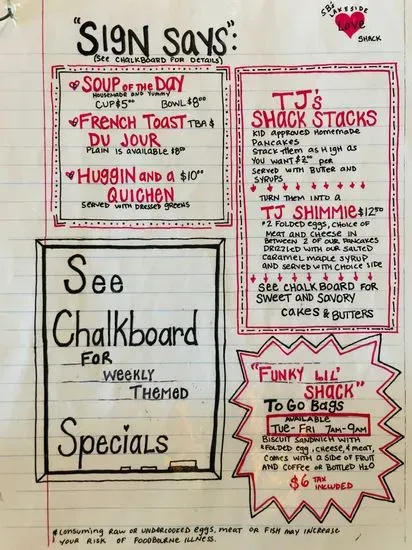 SB's
LAKESIDE
Love
SHACK
"SIGN SAYS":
(SEE CHALKBOARD FOR DETAILS)
SOUP OF THE DAY
HOUSEMADE AND YUMMY
CUP $5.00 BOWL $8.00
FRENCH TOAST TBA $
DU JOUR
PLAIN IS AVAILABLE $8.00
HUGGIN AND A $10.00
QUICHEN
SERVED WITH DRESSED GREENS
TJ's
SHACK STACKS
KID APPROVED HOMEMADE
PANCAKES
STACK THEM AS HIGH AS
YOU WANT $2.00 PER
SERVED WITH BUTTER AND
SYRUPS
TURN THEM INTO A
TJ SHIMMIE $12.50
*2 FOLDED EGGS, CHOICE OF
MEAT AND CHEESE IN
BETWEEN 2 OF OUR PANCAKES
DRAZZLED WITH OUR SALTED
CARAMEL MAPLE SYRUP
AND SERVED WITH CHOICE SIDE
SEE CHALKBOARD FOR
SWEET AND SAVORY
CAKES & BUTTERS
See
Chalkboard
FOR
WEEKLY
THEMED
Specials
"FUNKY LIL'
SHACK"
TO GO BAGS
AVAILABLE
TUE-FRI 7AM-9AM
BISCUIT SANDWICH WITH
*FOLDED EGG, CHEESE, & MEAT,
COMES WITH A SIDE OF FRUIT
AND COFFEE OR BOTTLED H2O
$6 TAX
INCLUDED
*CONSUMING RAW OR UNDERCOOKED EGGS, MEAT OR FISH MAY INCREASE
YOUR RISK OF FOODBOURNE ILLNESS.